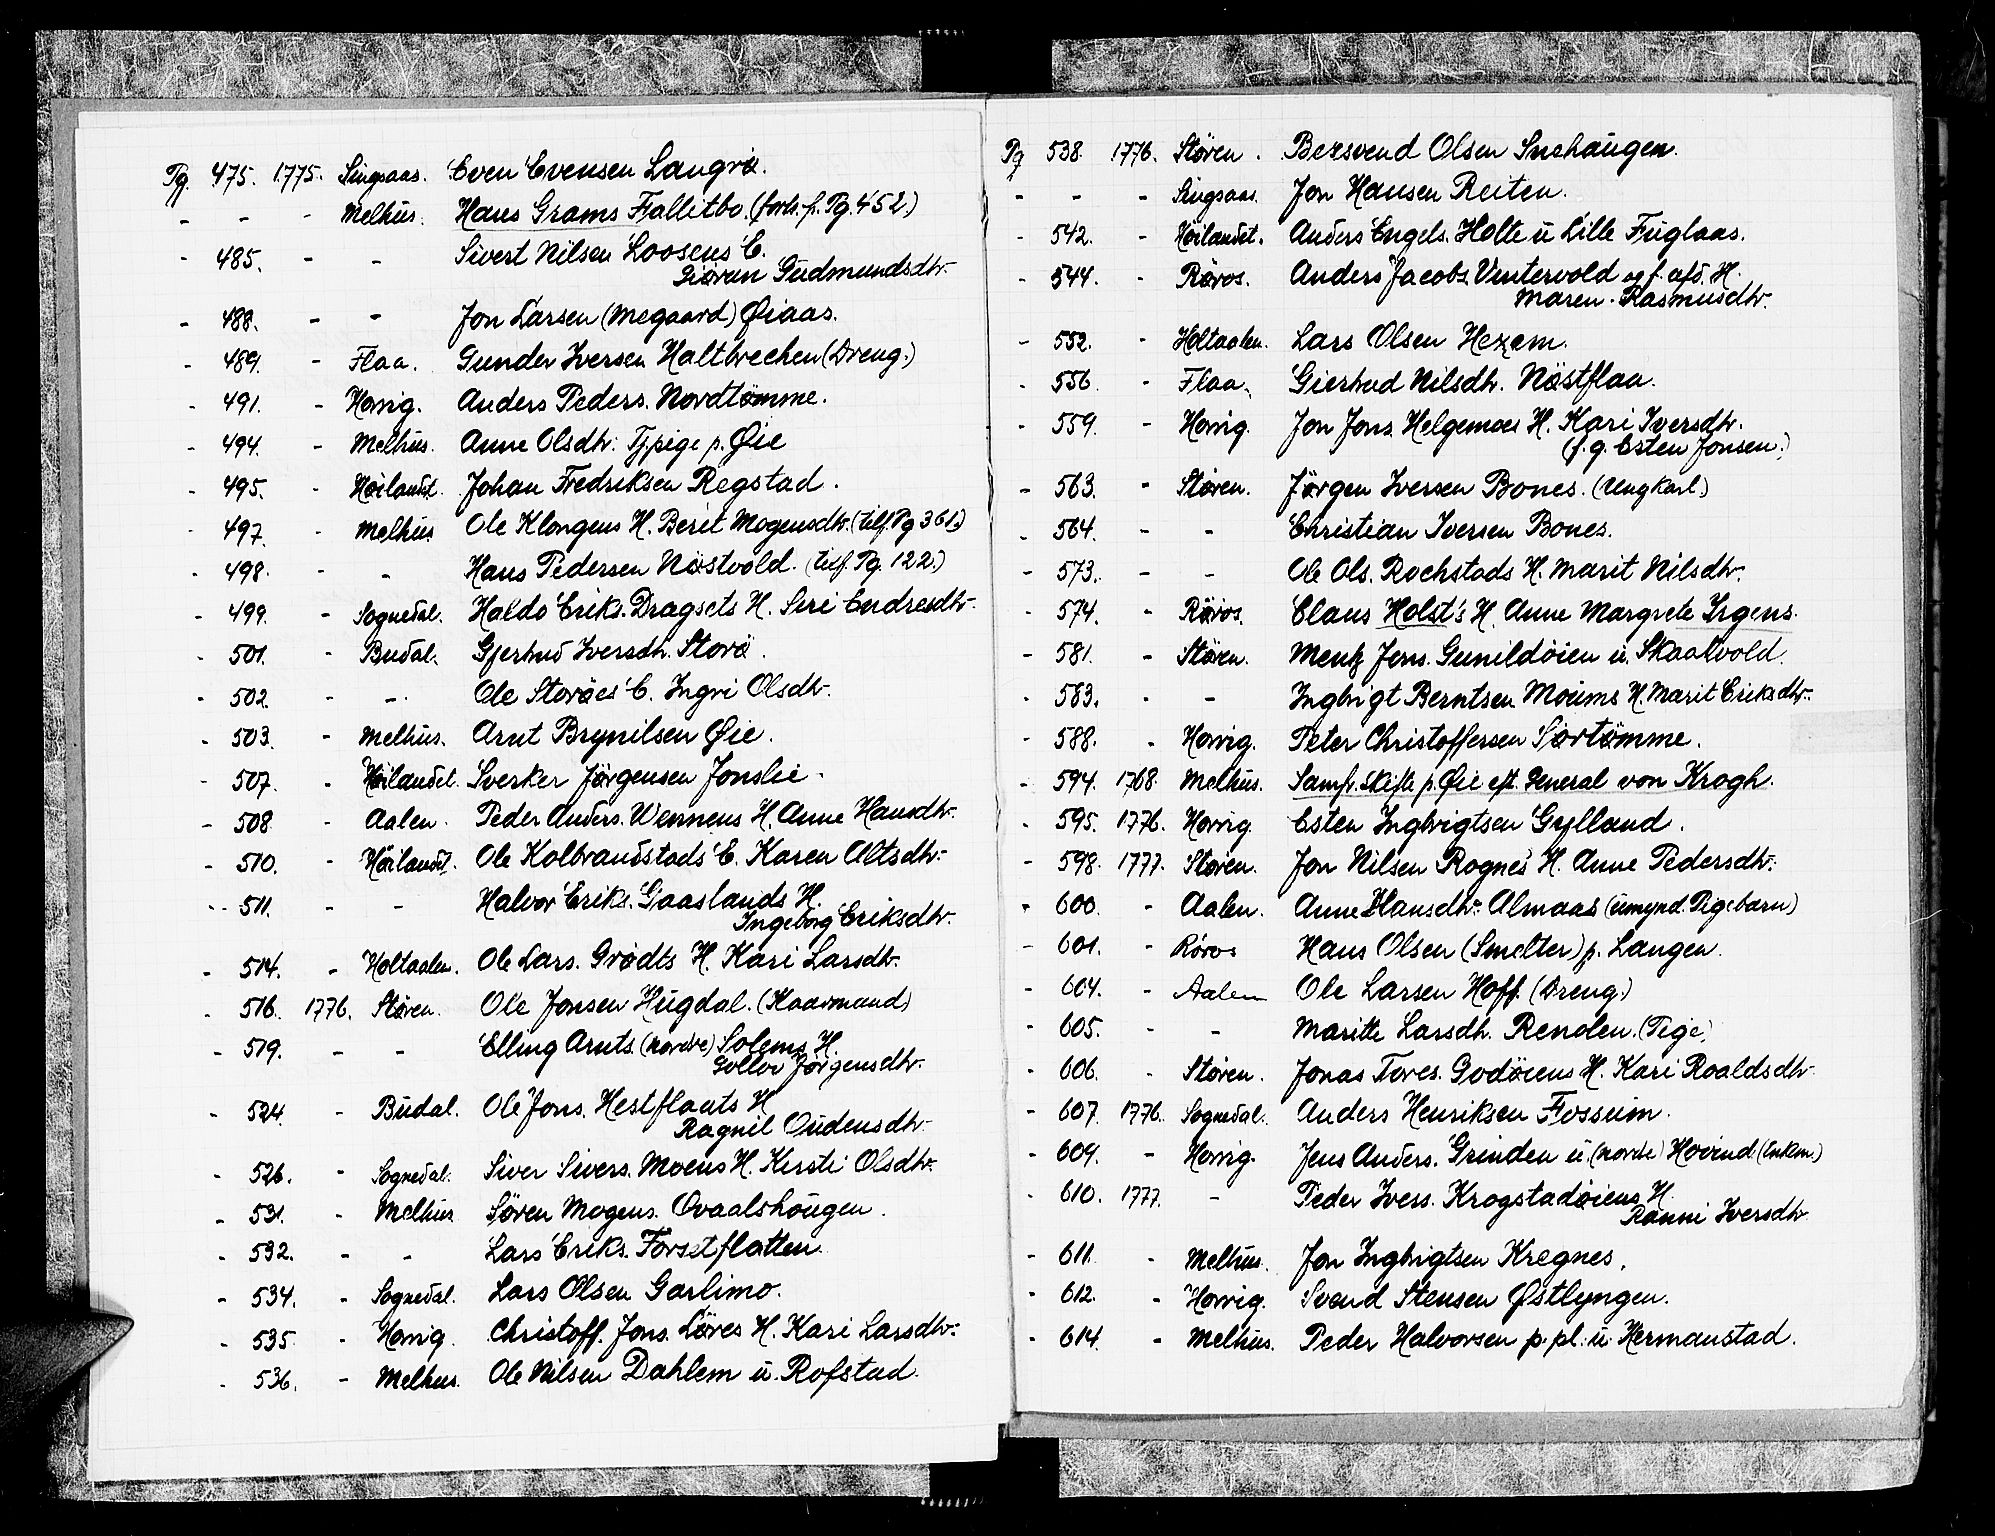 Pg. 475. 1775. Singsaas. Even Evensen Langrø.
- - - Melhus. Hans Grams Fallitbo. (forts. f. Pg. 452.)
- 485. - - Sivert Nilsen Loosens E.
Giøran Gudmundsdtr.
- 488. - - Jon Larsen (Megaard) Øiaas.
- 489. - Flaa. Gunder Iversen Haltbrechen (Dreng.)
- 491. - Horrig. Anders Peders. Nordtømme.
- 494. - Melhus. Anne Olsdtr. Tj.pige p. Øie
- 495. - Høilandet. Johan Fredriksen Regstad.
- 497. - Melhus Ole Klongens H. Berit Mogensdtr. (tilf. Pg 361.)
- 498. - - Hans Pedersen Nøstvold. (tilf. Pg. 122.)
- 499. - Sognedal. Haldo Eriks. Dragsets H. Siri Endresdtr.
- 501. - Budal. Gjertrud Iversdtr. Storø.
- 502. - - Ole Storøes E. Ingri Olsdtr.
- 503. - Melhus. Arnt Brynilsen Øie.
- 507. - Høilandet. Sverker Jørgensen Jonslie.
- 508 - Aalen. Peder Anders. Wennens H. Anne Hansdtr.
- 510. - Høilandet. Ole Kolbrandstads E. Karen Altsdtr.
- 511. - - Halvor Eriks. Gaaslands H.
Ingeborg Eriksdtr.
- 514. - Holtaalen. Ole Lars. Grødts H. Kari Larsdtr.
- 516. 1776. Støren. Ole Jonsen Hugdal. (Kaarmand)
- 519. - - Elling Arnts. (nordre) Solems H.
Golloi Jørgensdtr.
- 524. - Budal. Ole Jons. Hestflaats H
Ragnil Oudensdtr.
- 526. - Sognedal. Siver Sivers. Moens H. Kirsti Olsdtr.
- 531. - Melhus Søren Mogens. Ovaalshougen.
- 532. - - Lars Eriks. Forsetflatten.
- 534. - Sognedal. Lars Olsen Garlimo.
- 535. - Horrig. Christoff. Jons. Løres H. Kari Larsdtr.
- 536. - Melhus. Ole Nilsen Dahlem u. Rofstad.
Pg 538. 1776. Støren. Bersvend Olsen Snehaugen.
- - - Singsaas. Jon Hansen Reiten.
- 542. - Høilandet. Anders Engels. Holte u Lille Fuglaas.
- 544. - Røros. Anders Jacobs. Vintervold og f. afd. H.
Maren Rasmusdtr.
- 552. - Holtaalen. Lars Olsen Hexem.
- 556. - Flaa. Giertrud Nilsdtr. Nøstflaa.
- 559. - Horrig. Jon Jons. Helgemoes H. Kari Iversdtr.
(f. g. Esten Jonsen.)
- 563. - Støren. Jörgen Iversen Bones. (Ungkarl.)
- 564. - - Christian Iversen Bones.
- 573. - - Ole Ols. Rochstads H. Marit Nilsdtr.
- 574. - Røros. Claus Holst's H. Anne Margrete Irgens.
- 581. - Støren. Mentz Jens. Gunildøien u. Skaatvold.
- 583. - - Ingbrigt Berntsen Moums H. Marit Eriksdtr.
- 588. - Horrig. Peter Christoffersen Sørtømme.
- 594. 1768. Melhus. Samfr. skifte p. Øie eft. General von Krogh.
- 595. 1776. Horrig. Esten Ingbrigtsen Gylland.
- 598. 1777. Støren. Jon Nilsen Rognes H. Anne Pedersdtr.
- 600. - Aalen. Anne Hansdtr. Almaas (umynd. Pigebarn)
- 601. - Røros Hans Olsen (Smelter) p. Langen.
- 604. - Aalen Ole Larsen Hoff. (Dreng.)
- 605. - - Maritte Larsdtr. Renolen. (Pige.)
- 606. - Støren. Jonas Tores. Godøiens H. Kari Roaldsdtr.
- 607. 1776. Sognedal. Anders Henriksen Fosseim.
- 609. - Horrig. Jens Anders. Grinden u. (nordre) Hovind. (Enkem.)
- 610. 1777. - Peder Ivers. Krogstadøiens H.
Ranni Iversdtr.
- 611. - Melhus. Jon Ingbrigtsen Kregnes.
- 612. - Horrig. Svend Stensen Østlyngen.
- 614. - Melhus. Peder Halvorsen p. pl. u. Hermanstad.